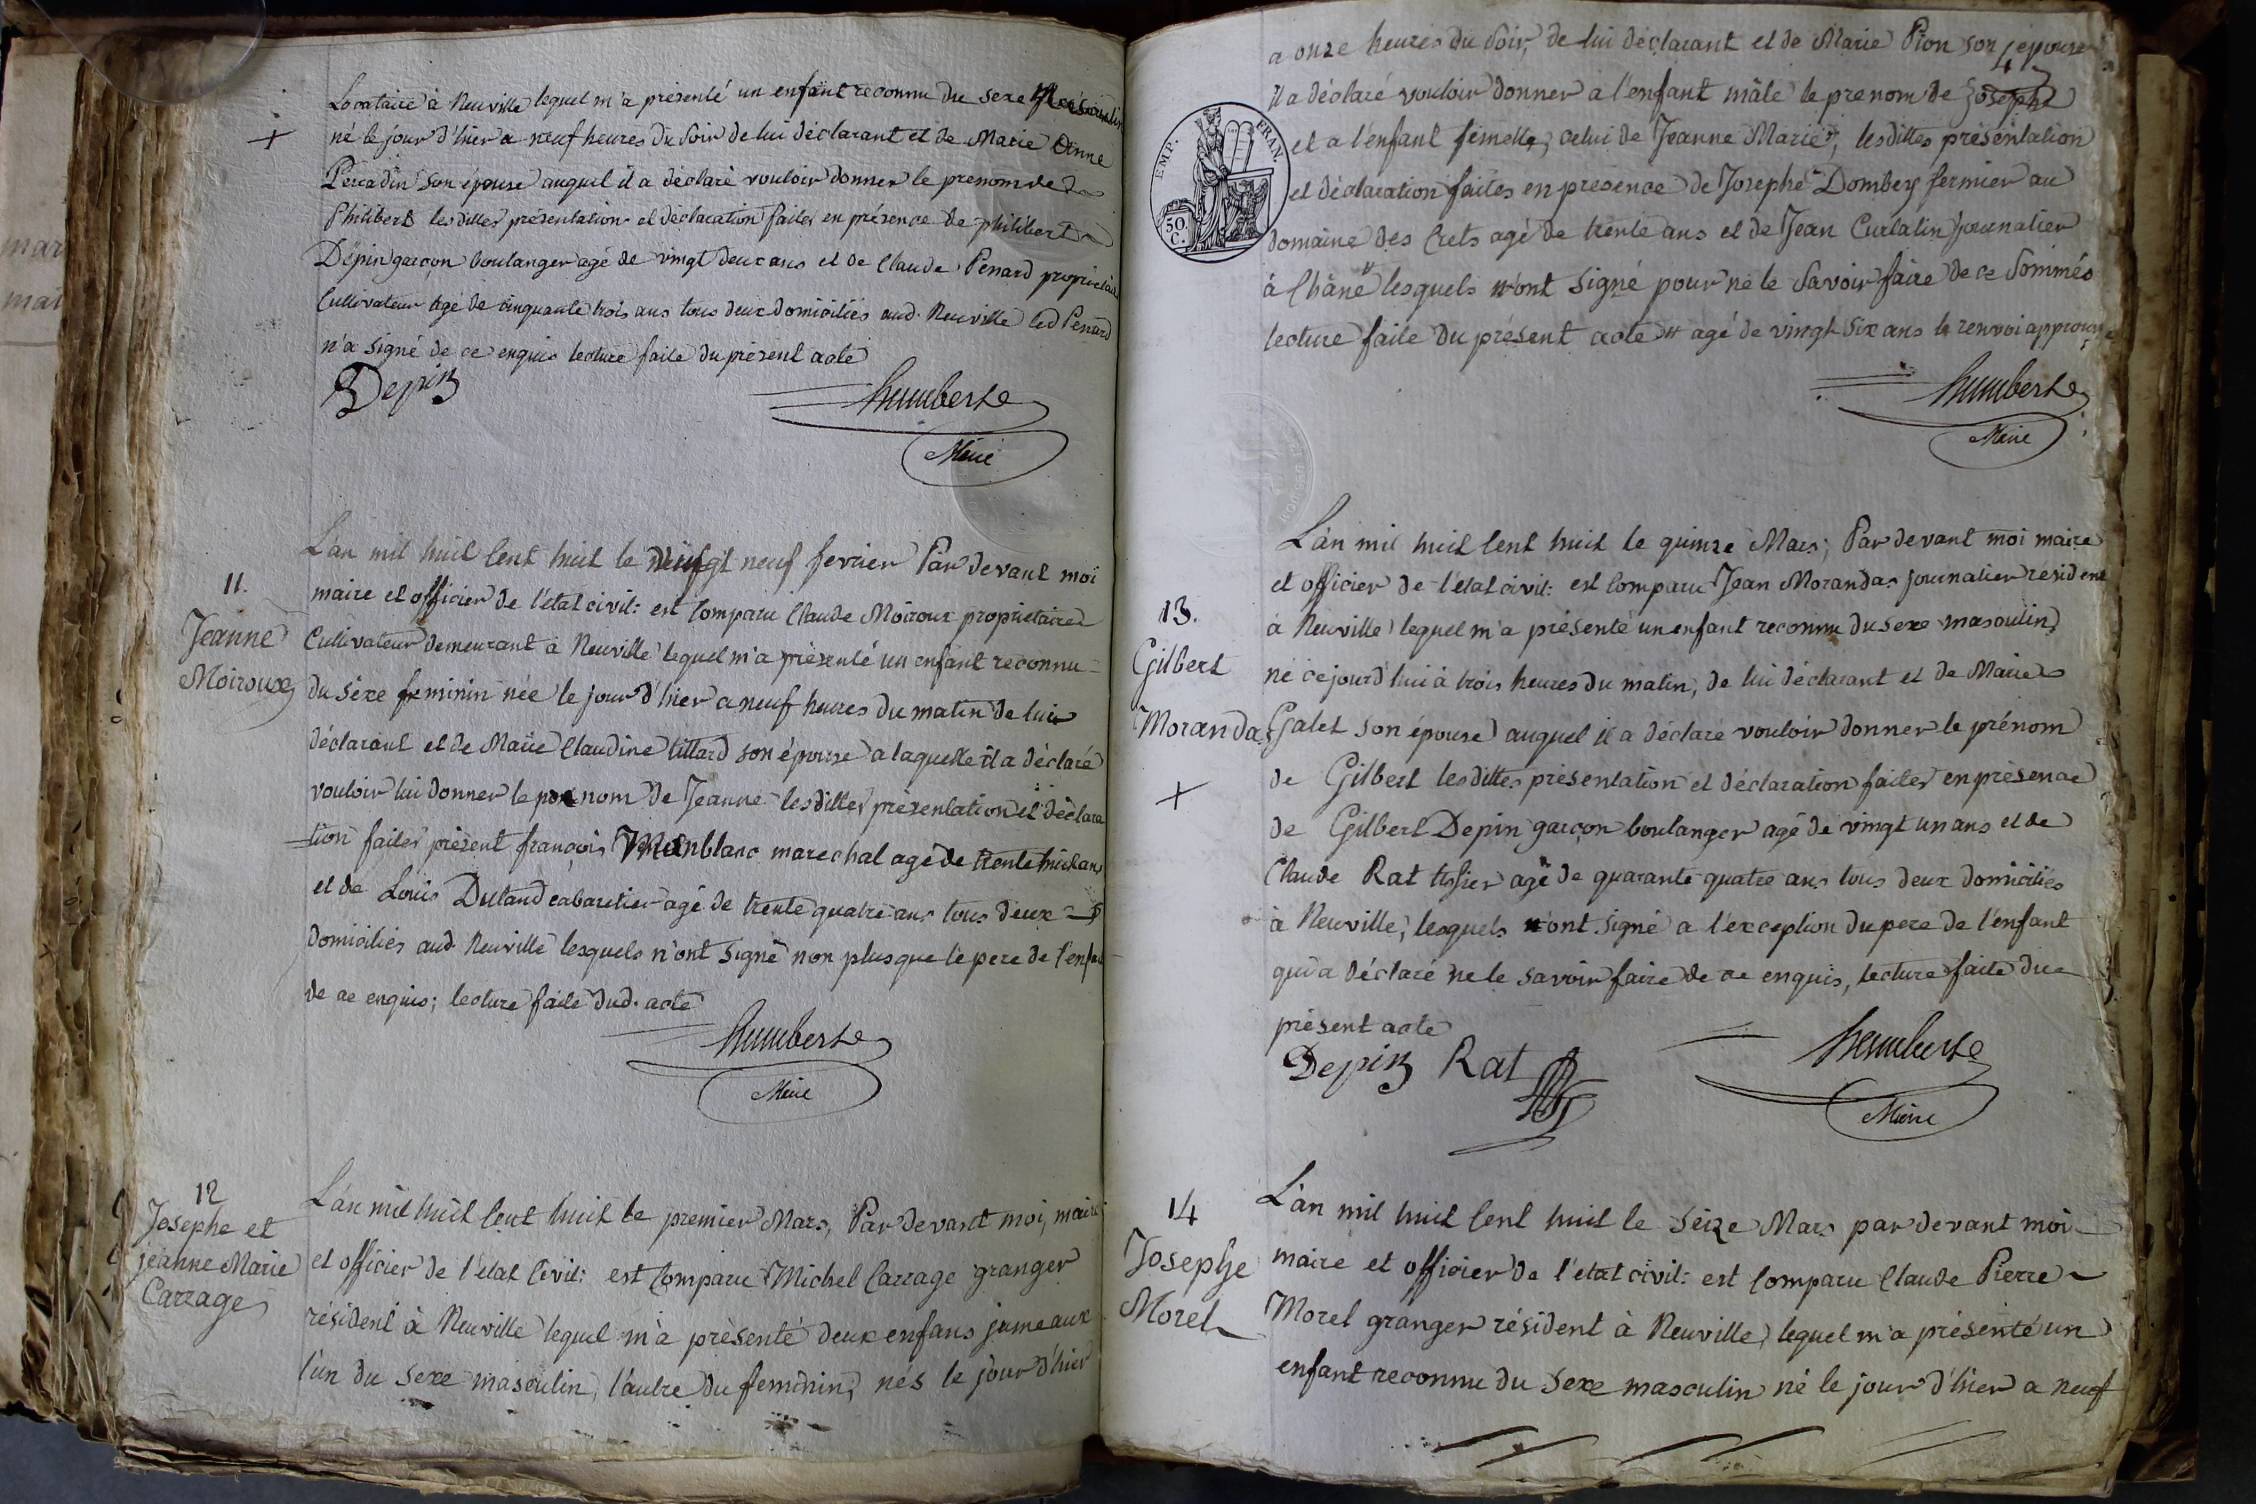 Locataire à Neuville lequel m'a présenté un enfant reconnu du sexe
+
né le jour d'hier a neuf heures du soir de lui déclarant et de Marie Anne
Percadin son épouse auquel il a déclaré vouloir donner le prenom de
Philibert lesdittes présentation et déclaration faites en présence de philibert
Depin garçon boulanger agé de vingt deux ans et de Claude Penard proprietaire
Cultivateur agé de cinquante trois ans tous deux domiciliés aud. Neuville led Penard
n'a signé de ce enquis lecture faite du présent acte
Depin
humberte
Maire
11.
Jeanne
Moiroux
L'an mil huit cent huit le vingt neuf fevrier Par devant moi
maire et officier de l'etat civil: est Comparu Claude Moiroux propriétaire
Cultivateur demeurant à Neuville lequel m'a présenté un enfant reconnu
du sexe feminin née le jour d'hier a neuf heures du matin de lui
déclarant et de Marie Claudine tillard son épouse a laquelle il a déclaré
vouloir lui donner le prenom de Jeanne lesdittes présentation et déclara
tion faites présent françois Monblanc marechal agé de trente huit ans
et de Louis Dutand cabaretier agé de trente quatre ans tous deux
domiciliés aud. Neuville lesquels n'ont signé non plus que le pere de l'enfant
de ce enquis; lecture faite dud. acte
humberte
Maire
12
Josephe et
jeanne Marie
Carrage
L'an mil huit cent huit le premier Mars, Par devant moi, maire
et officier de l'etat Civil: est Comparu Michel Carrage granger
résident à Neuville lequel m'a présenté deux enfans jumeaux
l'un du sexe masculin, l'autre du feminin, nés le jour d'hier
4
a onze heures du soir, de lui déclarant et de Marie Pion son epouse
il a déclaré vouloir donner a l'enfant mâle le prenom de Josephe
et a l'enfant femelle, celui de Jeanne Marie, lesdittes présentation
et déclaration faites en présence de Josephe Dombey fermier au
domaine des Crets agé de trente ans et de Jean Curtalin journalier
à Chane lesquels n'ont signé pour ne le savoir faire de ce sommés
lecture faite du présent acte agé de vingt six ans le renvoi approuvé
EMP. FRAN.
50.
C.
humberte
Maire
13.
Gilbert
Morandas
+
L'an mil huit cent huit le quinze Mars, Par devant moi maire
et officier de l'etat civil: est comparu Jean Morandas journalier resident
à Neuville lequel m'a présenté un enfant reconnu du sexe masculin
né cejourd'hui à trois heures du matin, de lui déclarant et de Marie
Galet son épouse auquel il a déclaré vouloir donner le prénom
de Gilbert lesdittes présentation et déclaration faites en présence
de Gilbert Depin garçon boulanger agé de vingt un ans et de
Claude Rat tissier agé de quarante quatre ans tous deux domiciliés
à Neuville, lesquels ont signé a l'exception du pere de l'enfant
qui a déclaré ne le savoir faire de ce enquis, lecture faite du
présent acte
Depin Rat
humberte
Maire
14
Josephe
Morel
L'an mil huit cent huit le seize Mars par devant moi
maire et officier de l'etat civil: est Comparu Claude Pierre
Morel granger résident à Neuville lequel m'a présenté un
enfant reconnu du sexe masculin né le jour d'hier a neuf